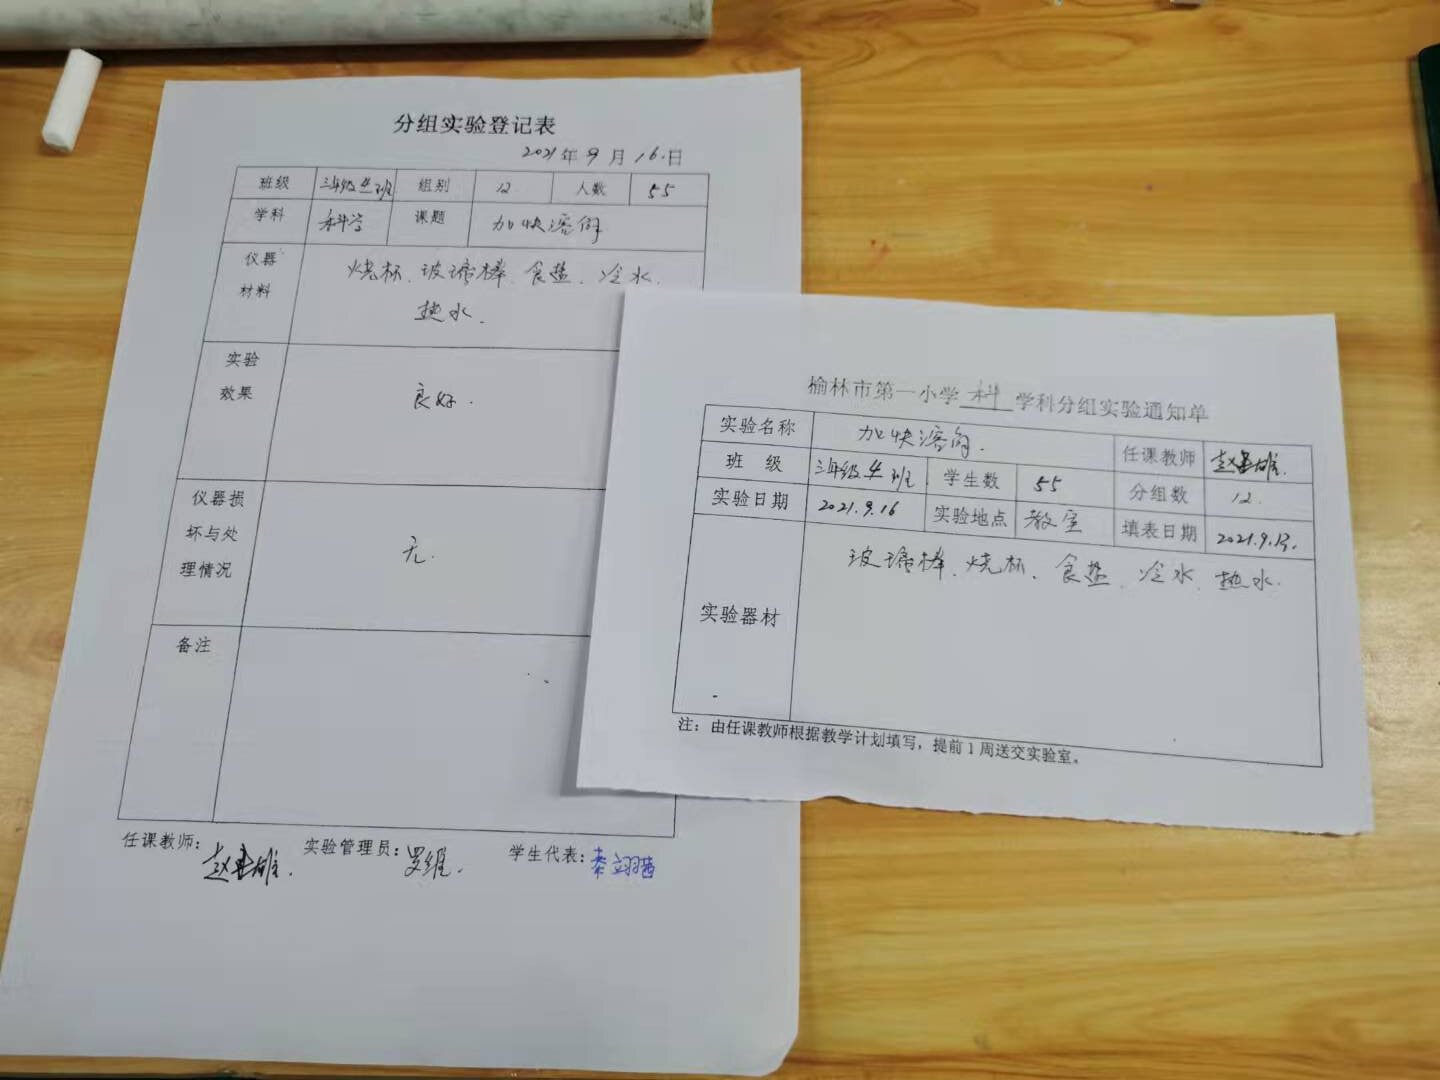 分组实验登记表
2021年9月16日
班级 三年级 班 组别 12 人数 55
学科 科学 课题 加快溶解
仪器材料 烧杯、玻璃棒、食盐、冷水、
热水.
实验效果 良好.
仪器损坏与处理情况 无.
备注
任课教师: 赵 雄. 实验管理员: 罗维. 学生代表: 秦翊茜
榆林市第一小学 科 学科分组实验通知单
实验名称 加快溶解. 任课教师 赵 雄.
班 级 三年级 班 学生数 55 分组数 12.
实验日期 2021.9.16 实验地点 教室 填表日期 2021.9.13.
实验器材 玻璃棒、烧杯、食盐、冷水、热水.
注：由任课教师根据教学计划填写，提前1周送交实验室。